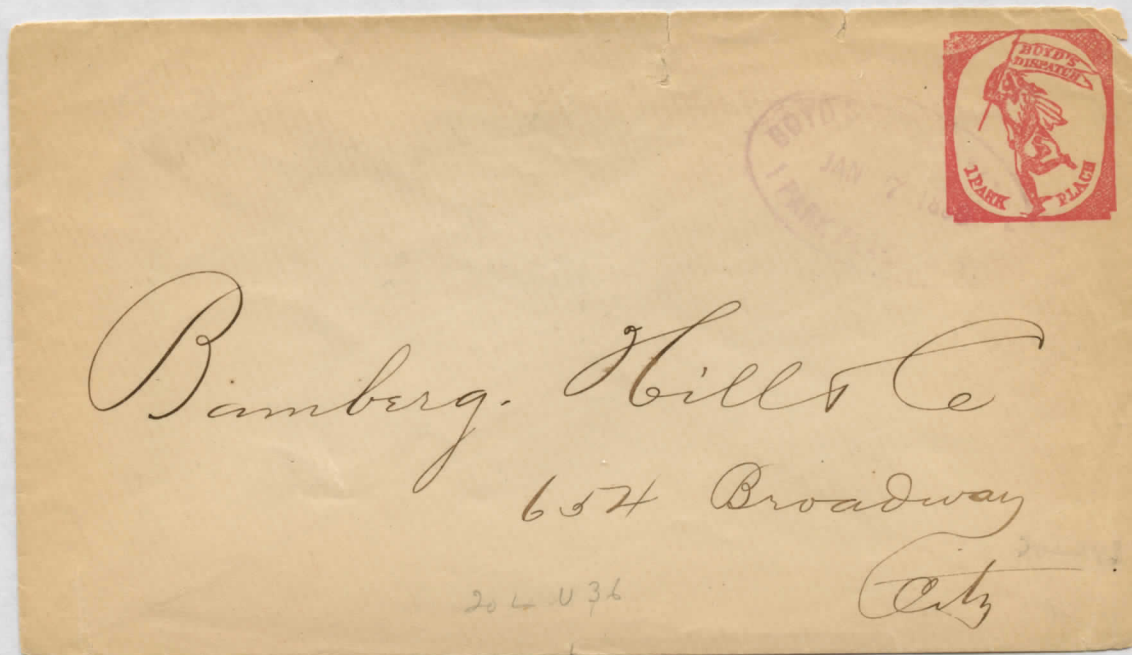 BOYD'S
DISPATCH
1 PARK PLACE
BOYD'S
JAN 7
1 PARK PLACE
Bamberg. Hill & Co
654 Broadway
City
20 L U 36